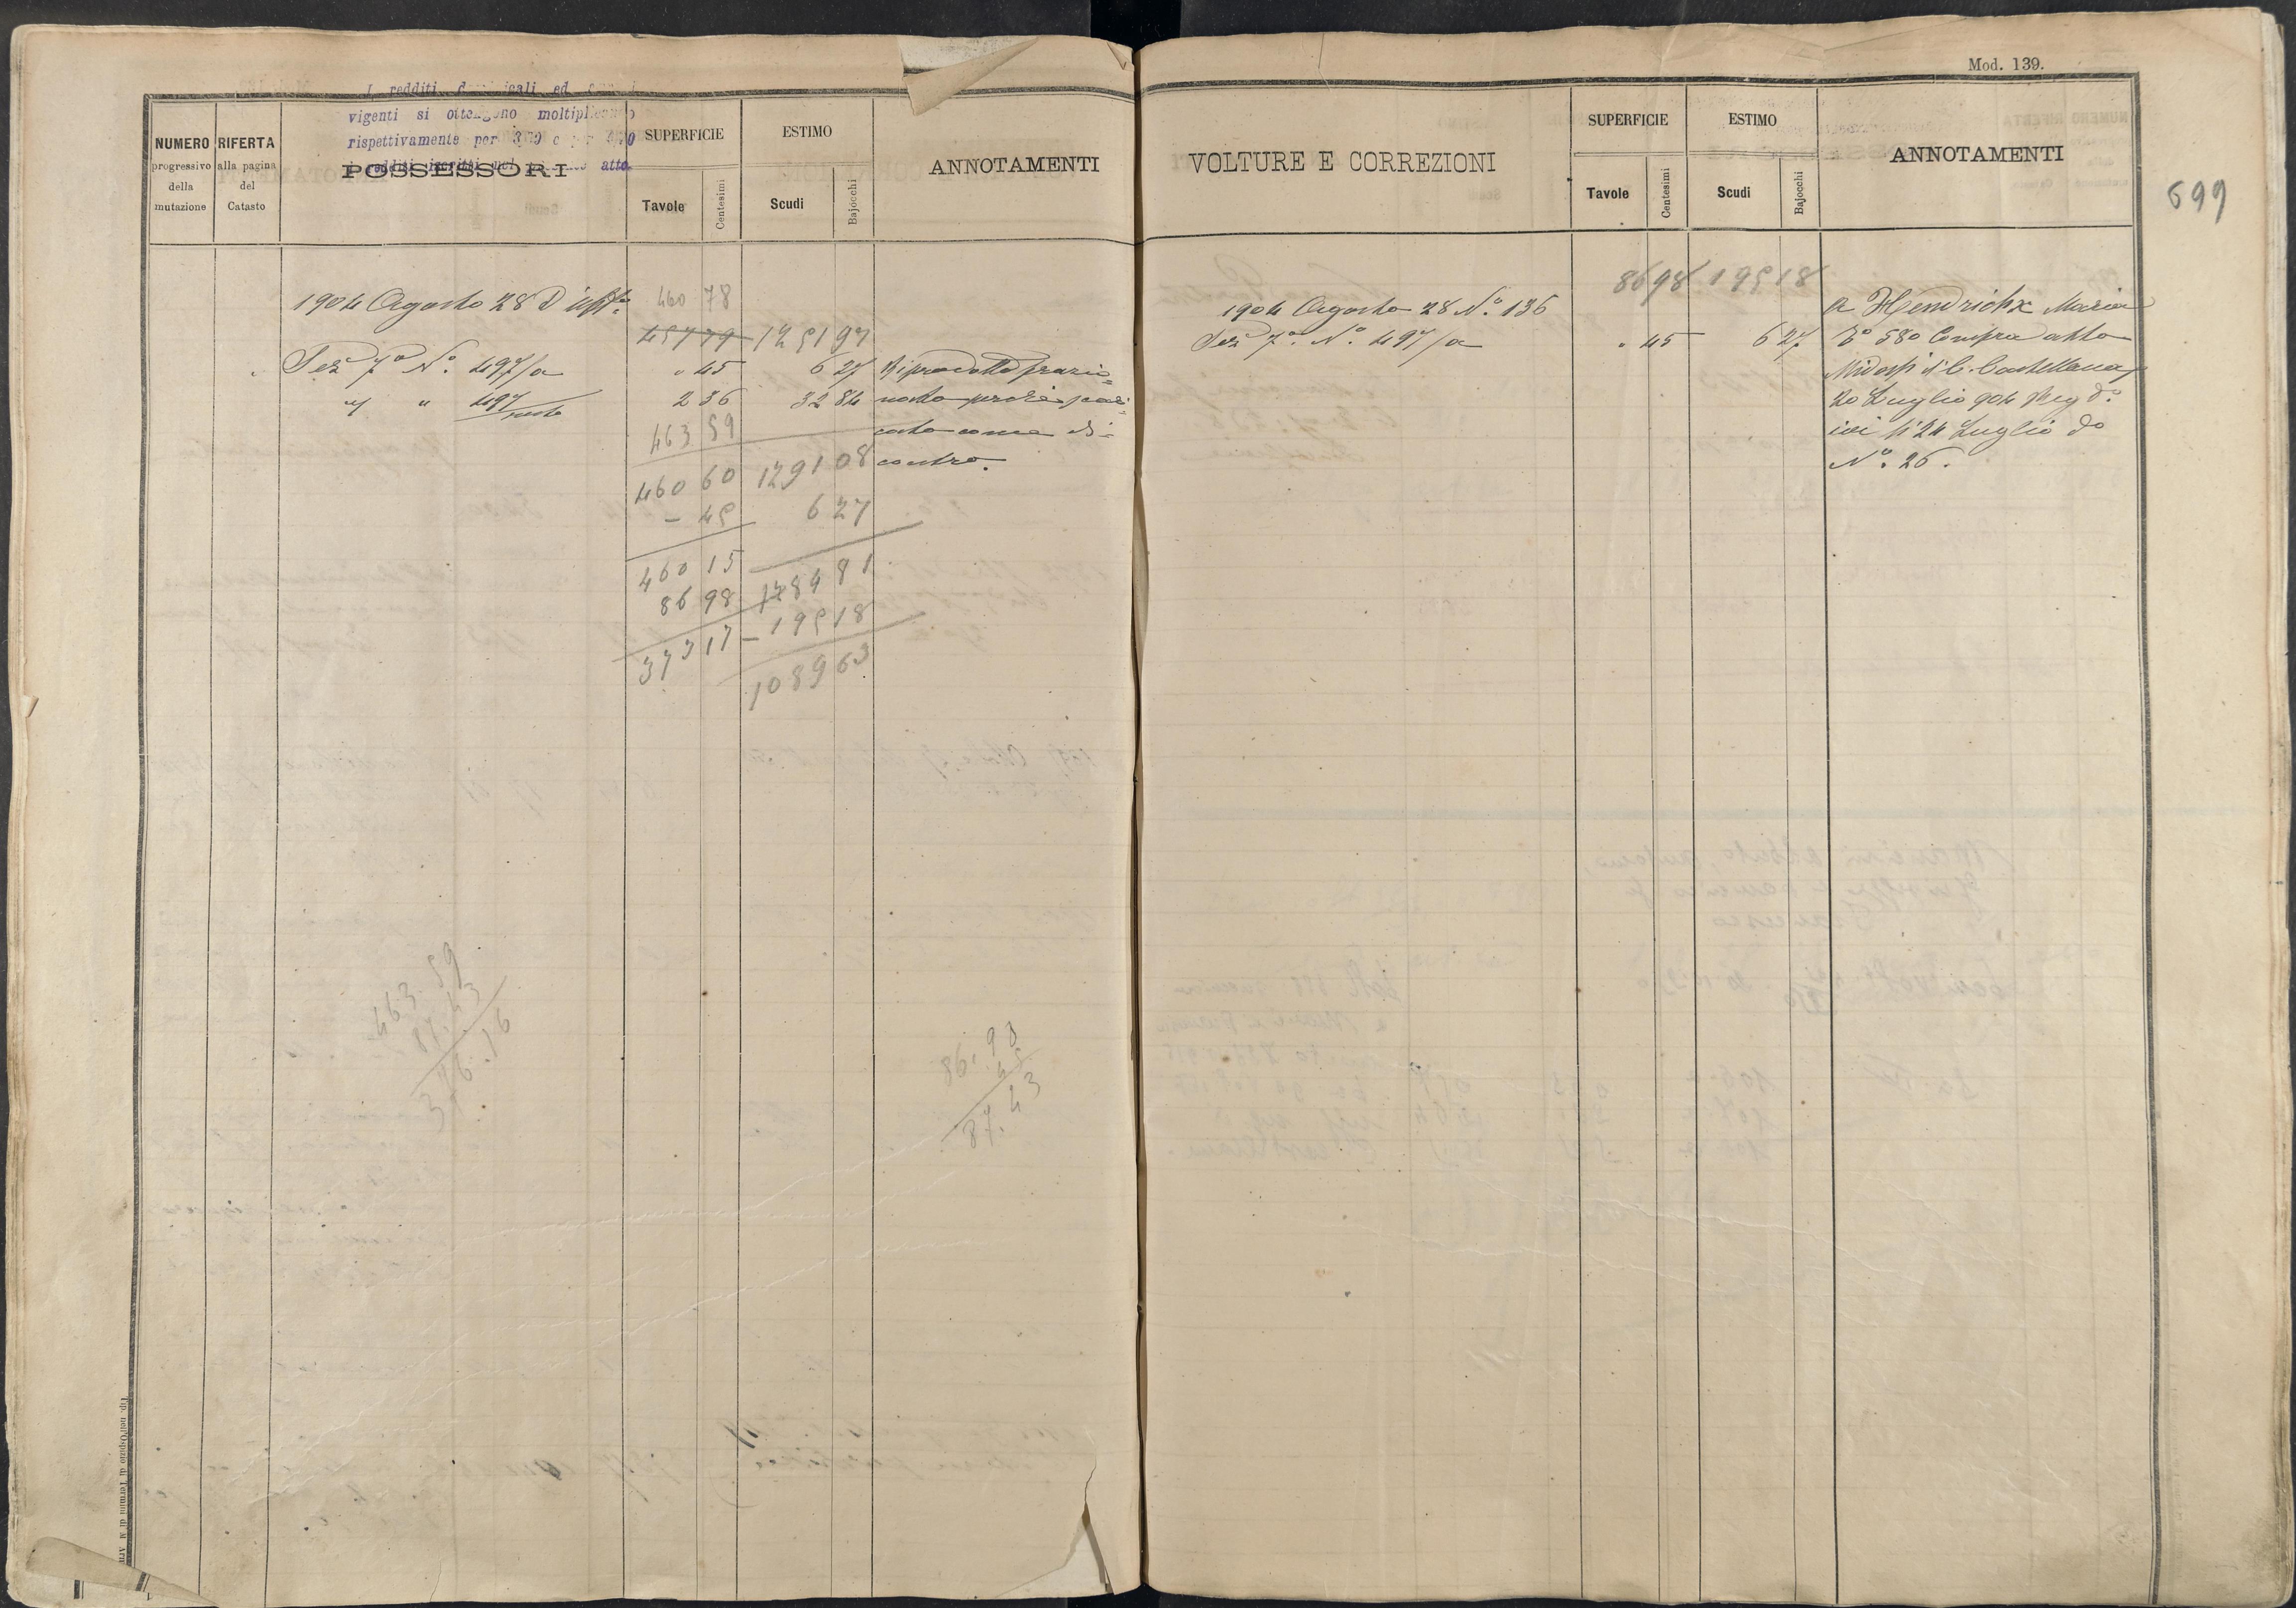 Mod. 139.
699
I redditi ed
vigenti si ottengono
rispettivamente per
atto
NUMERO
progressivo
della
mutazione
RIFERTA
alla pagina
del
Catasto
POSSESSORI
SUPERFICIE
Tavole
Centesimi
ESTIMO
Scudi
Bajocchi
ANNOTAMENTI
1904 Agosto 28 D'uff°
460 78
457 79 1251 97
Sez 7a N° 497/a " 45 6 27 Riprodotto frazio=
" " 497/resto 2 36 32 84
463 59
460 60 1291 08 contro.
- 45 6 27
460 15 1284 81
86 98 - 195 18
373 17 1089 63
463.59
87.43
376.16
86.98
45
87.43
VOLTURE E CORREZIONI
SUPERFICIE
Tavole
Centesimi
ESTIMO
Scudi
Bajocchi
ANNOTAMENTI
86 98 195 18
1904 Agosto 28 N° 136
Sez 7a N° 497/a " 45 6 27
a Hendrickx Maria
580 Compra atto
C. Castellana
20 Luglio 904 Reg d°
ivi li 24 Luglio d°
N° 26.